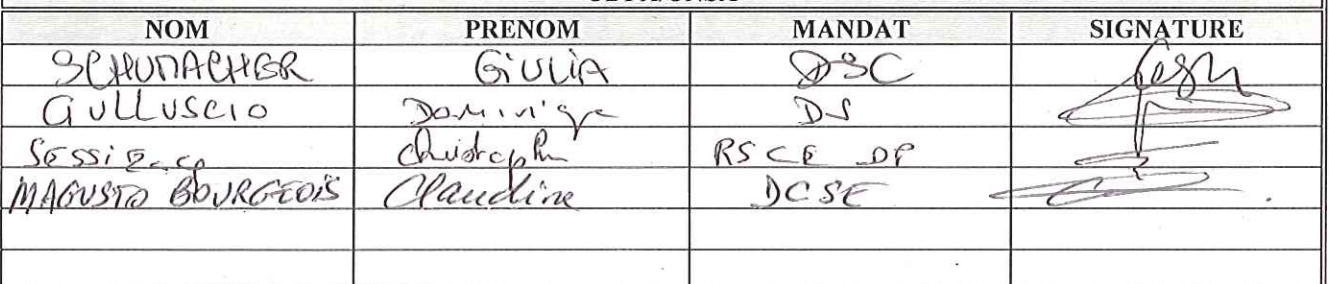 NOM PRENOM MANDAT SIGNATURE
SCHUMACHER GiULIA DSC
GULLUSCIO Dominique DS
Christophe RSCE DP
MAGUSTO BOURGEOIS Claudine DCSE